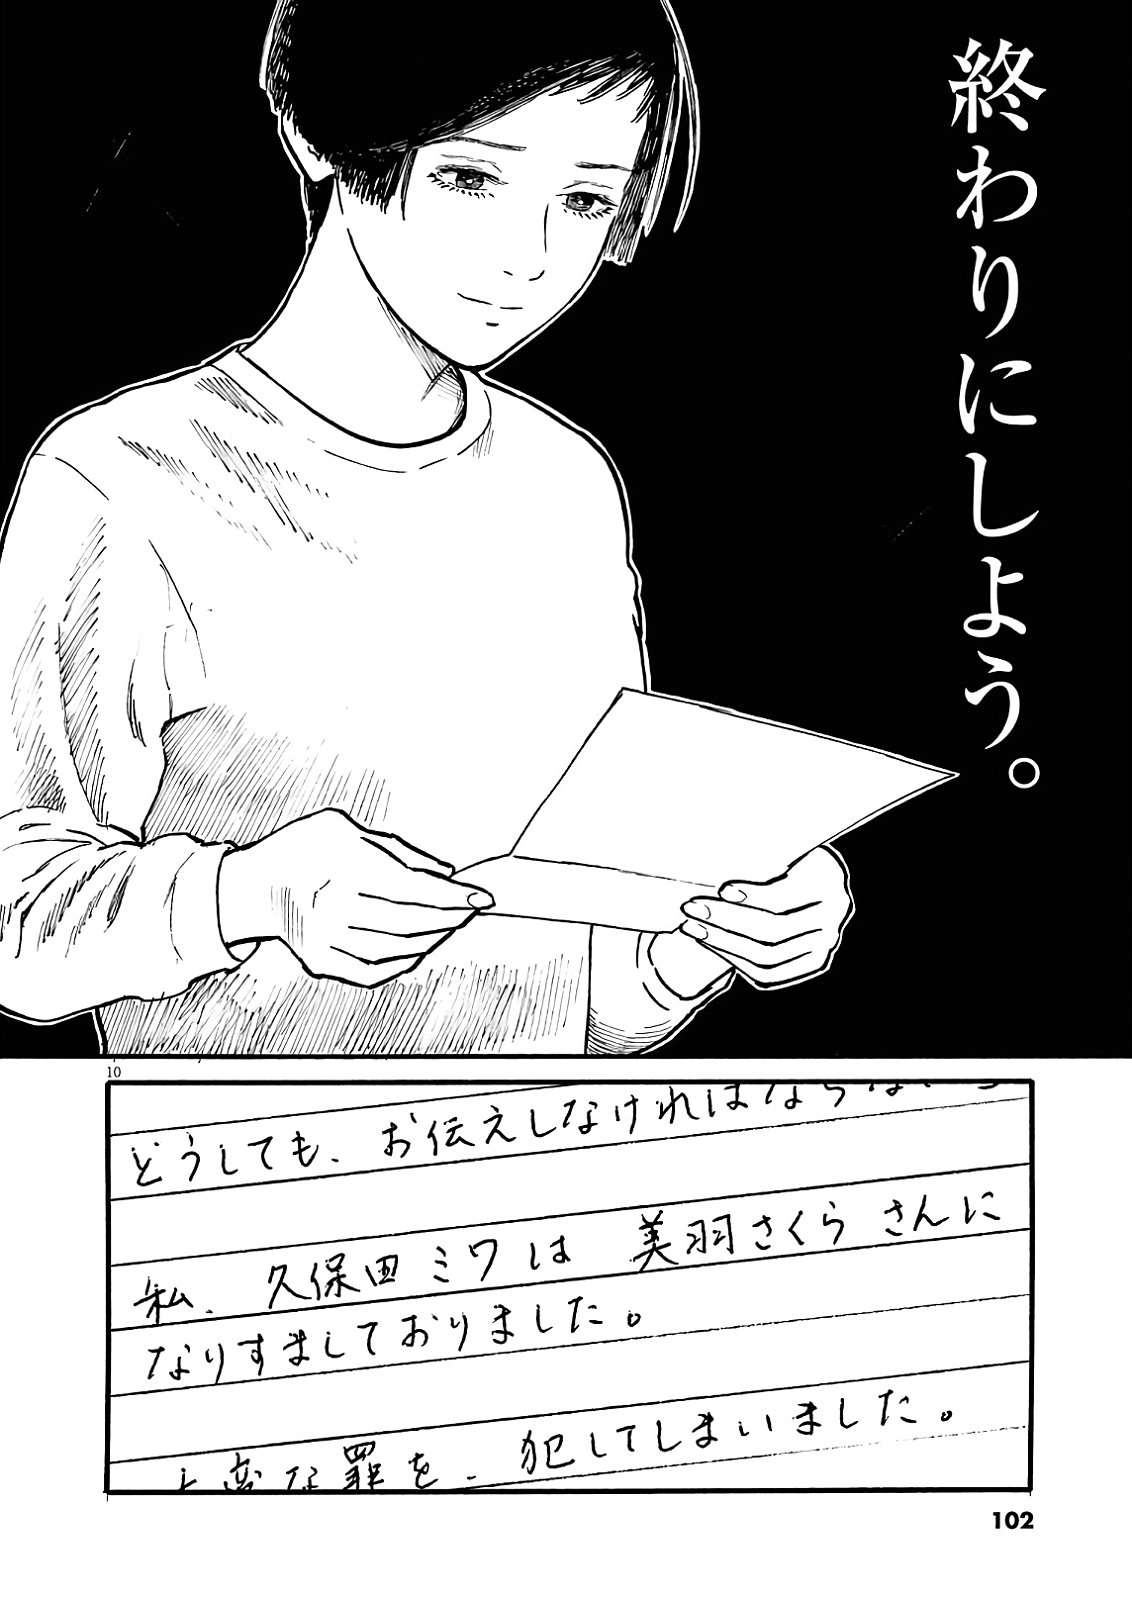 終わりにしよう。
10
どうしても、お伝えしなければならない
私、久保田ミワは 美羽さくらさんに
なりすましておりました。
大変な罪を、犯してしまいました。
102